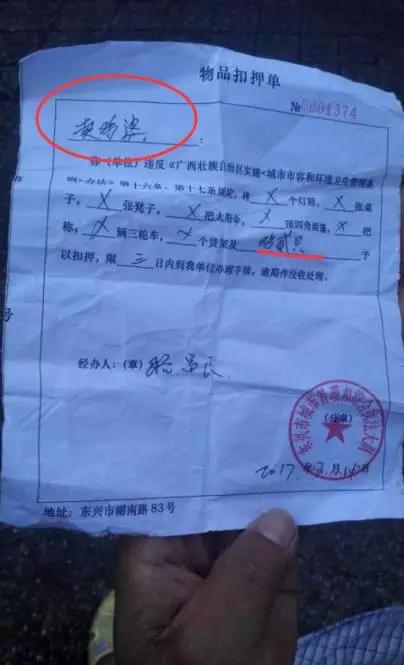 物品扣押单
№0001374
:
你(单位)违反《广西壮族自治区实施<城市市容和环境卫生管理条
例>办法》第十六条、第十七条规定,将 X 个灯箱, X 张桌
子, X 张凳子, X 把太阳伞, X 顶四角雨蓬, X 把
称, X 辆三轮车, X 个货架及 鸡贰只 予
以扣押,限 三 日内到我单位办理手续,逾期作没收处理。
经办人:(章)
(公章)
东兴市城市管理和综合执法大队
2017年 月 日
地址:东兴市湖南路83号